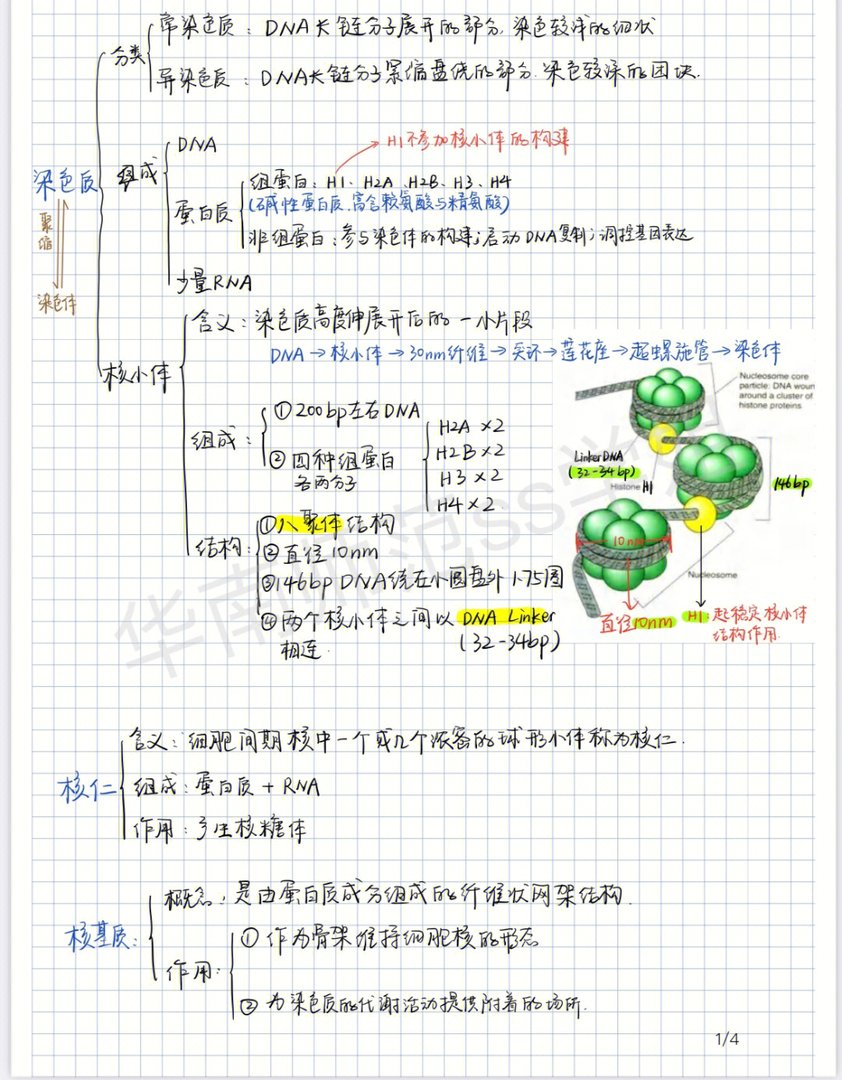 常染色质：DNA长链分子展开的部分，染色较浅的细状
分类
异染色质：DNA长链分子紧缩盘绕的部分.染色较深的团块.
H1不参加核小体的构建
DNA
染色质
组成
组蛋白：H1、H2A、H2B、H3、H4
蛋白质
(碱性蛋白质.富含赖氨酸与精氨酸)
聚缩
非组蛋白：参与染色体的构建；启动DNA复制；调控基因表达
少量RNA
染色体
含义：染色质高度伸展开后的一小片段
DNA→核小体→30nm纤维→突环→莲花座→超螺旋管→染色体
核小体
Nucleosome core
particle: DNA woun
around a cluster of
histone proteins
①200bp左右DNA
组成：
②四种组蛋白
各两分子
H2A×2
H2B×2
H3×2
H4×2
Linker DNA
(32-34bp)
Histone H1
146bp
结构：
①八聚体结构
②直径10nm
③146bp DNA绕在小圆盘外1.75圈
④两个核小体之间以DNA Linker
相连.
(32-34bp)
10nm
Nucleosome
直径10nm
H1：起稳定核小体
结构作用.
华南师范ss学
含义：细胞间期核中一个或几个浓密的球形小体称为核仁.
核仁
组成：蛋白质+RNA
作用：产生核糖体
概念：是由蛋白质成分组成的纤维状网架结构.
核基质：
①作为骨架维持细胞核的形态
作用：
②为染色质的代谢活动提供附着的场所.
1/4